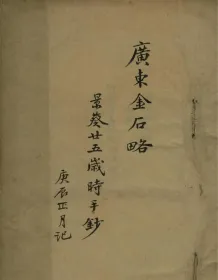 廣東金石略
景葵廿五歲時手鈔
庚辰正月記